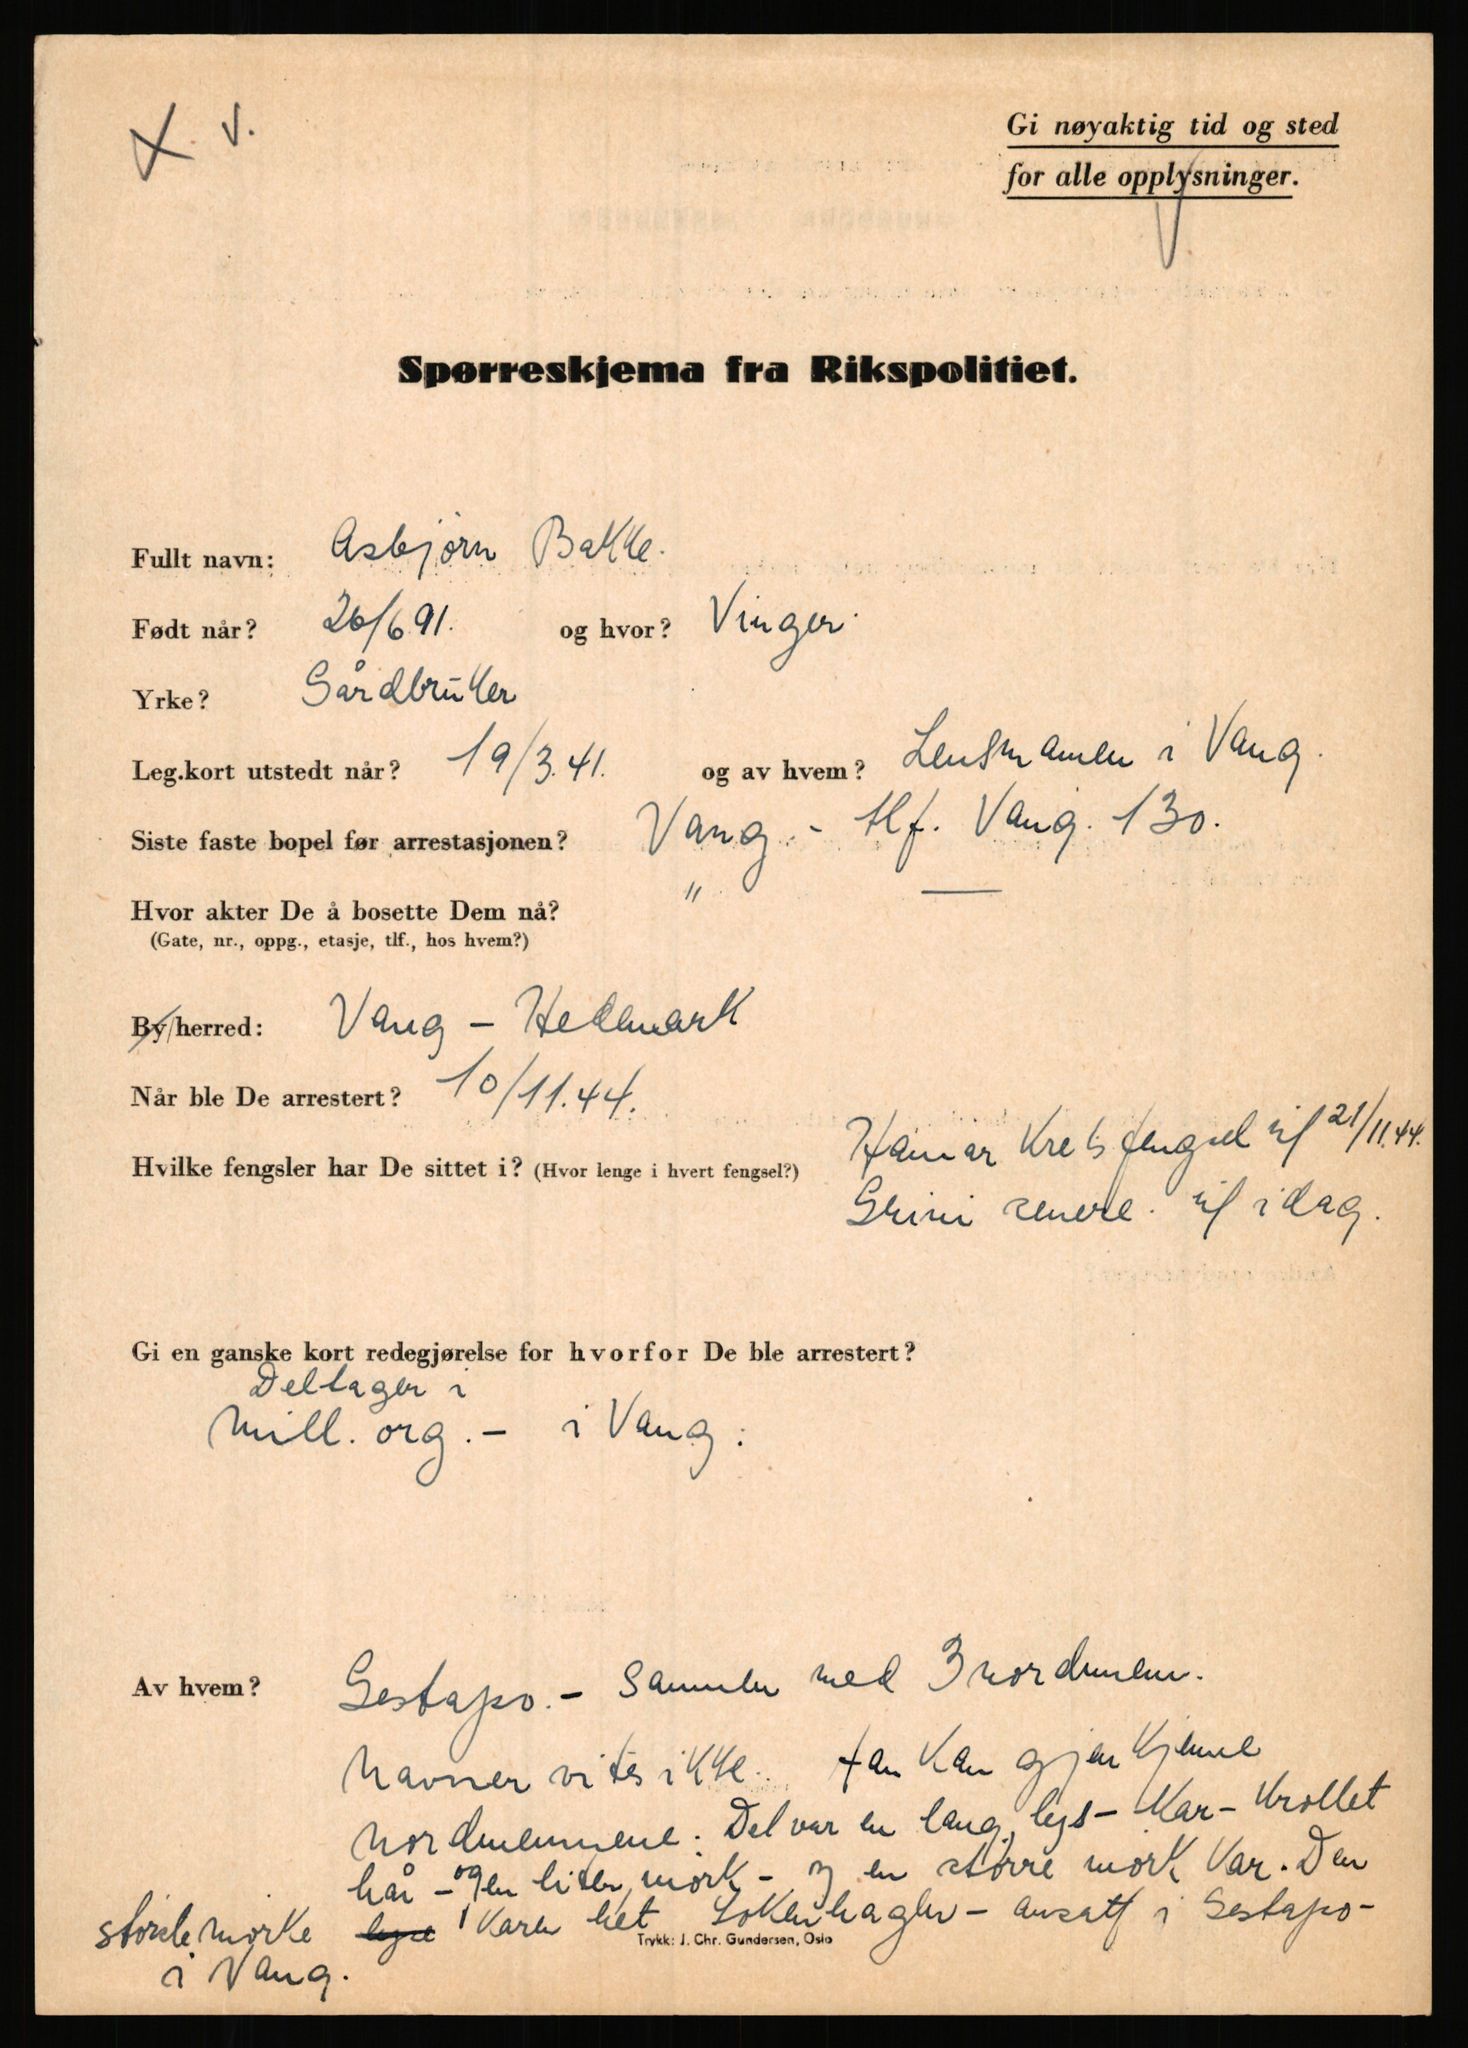 X. V.
Gi nøyaktig tid og sted
for alle opplysninger.
Spørreskjema fra Rikspolitiet.
Fullt navn: Asbjørn Bakke.
Født når? 26/6 91. og hvor? Vinger.
Yrke? Gårdbruker
Leg.kort utstedt når? 19/3.41. og av hvem? Lensmannen i Vang.
Siste faste bopel før arrestasjonen? Vang. - tlf. Vang. 130.
Hvor akter De å bosette Dem nå? " —
(Gate, nr., oppg., etasje, tlf., hos hvem?)
By/herred: Vang - Hedmark
Når ble De arrestert? 10/11.44.
Hvilke fengsler har De sittet i? (Hvor lenge i hvert fengsel?) Hamar Kretsfengsel til 21/11.44.
Grini senere. til idag.
Gi en ganske kort redegjørelse for hvorfor De ble arrestert?
Deltager i
Mill. org. - i Vang.
Av hvem? Gestapo. - Sammen med 3 nordmenn.
Navner vites ikke. Han kan gjenkjenne
nordmennene. Det var en lang, lys - kar - krollet
hår - og en liten mørk - og en større mørk kar. Den
største mørke lyse karen het Lokenhagen - ansatt i Gestapo -
i Vang.
Trykk: J. Chr. Gundersen, Oslo